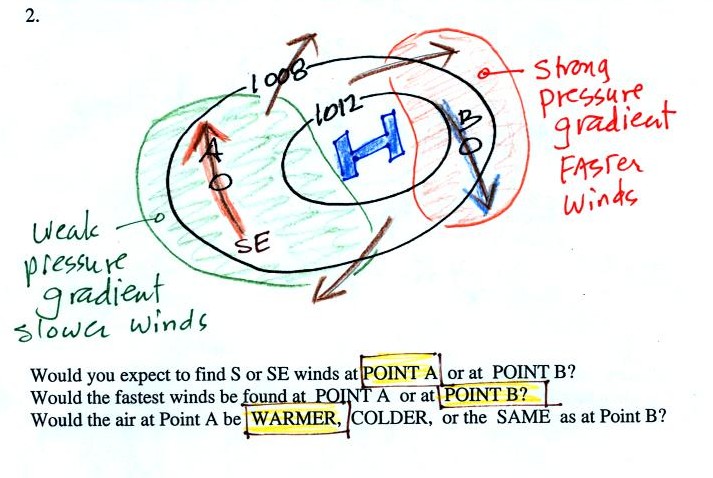 2.
1008
1012
H
A
B
SE
Strong
pressure
gradient
FASTER
winds
weak
pressure
gradient
slower winds
Would you expect to find S or SE winds at POINT A or at POINT B?
Would the fastest winds be found at POINT A or at POINT B?
Would the air at Point A be WARMER, COLDER, or the SAME as at Point B?